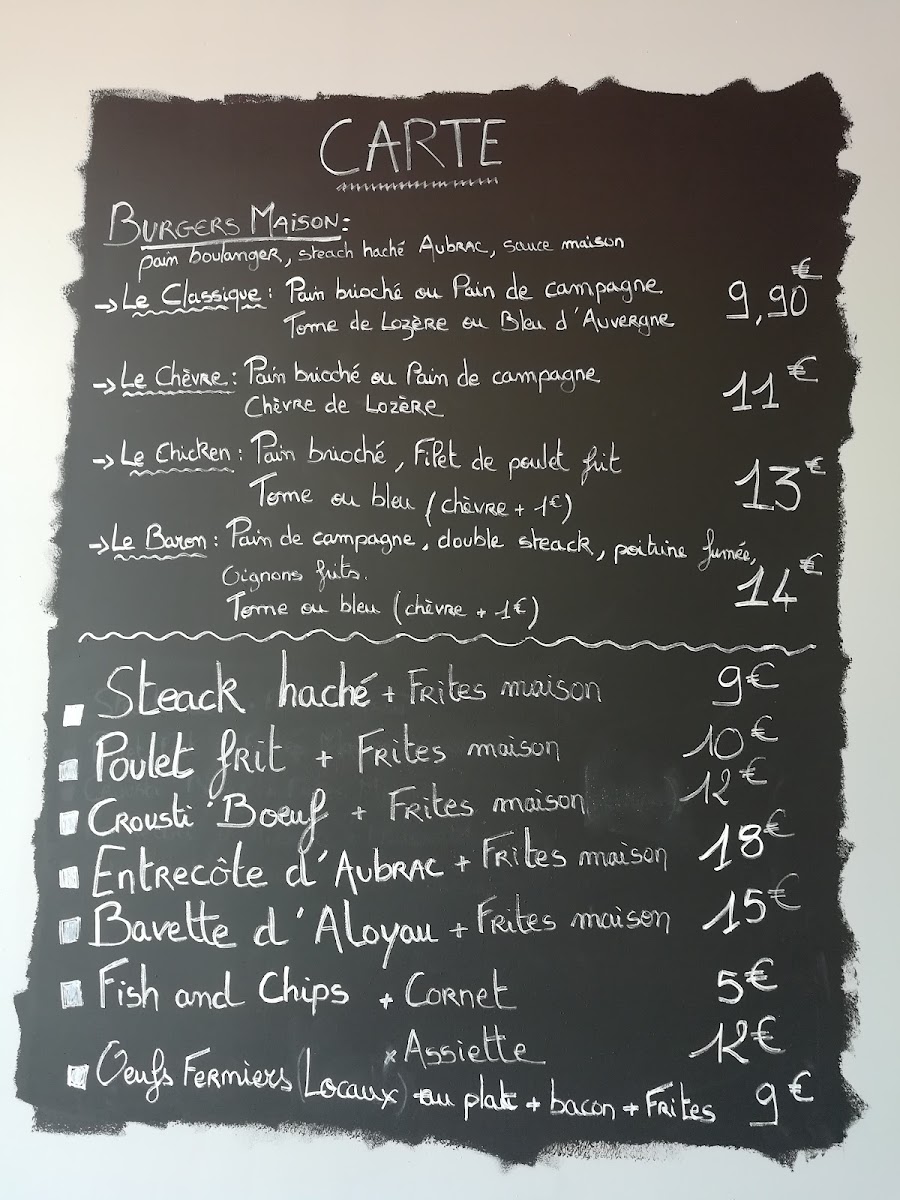 CARTE
BURGERS MAISON:
pain boulanger, steach haché Aubrac, sauce maison
→ Le Classique : Pain brioché ou Pain de campagne
Tome de Lozère ou Bleu d'Auvergne
9,90€
→ Le Chèvre : Pain brioché ou Pain de campagne
Chèvre de Lozère
11€
→ Le Chicken : Pain brioché, Filet de poulet frit
Tome ou bleu (chèvre + 1€)
13€
→ Le Baron : Pain de campagne, double steack, poitrine fumée,
Oignons frits.
Tome ou bleu (chèvre + 1€)
14€
Steack haché + Frites maison 9€
Poulet frit + Frites maison 10€
Crousti'Boeuf + Frites maison 12€
Entrecôte d'Aubrac + Frites maison 18€
Bavette d'Aloyau + Frites maison 15€
Fish and Chips + Cornet 5€
x Assiette 12€
Oeufs Fermiers (Locaux) au plat + bacon + Frites 9€